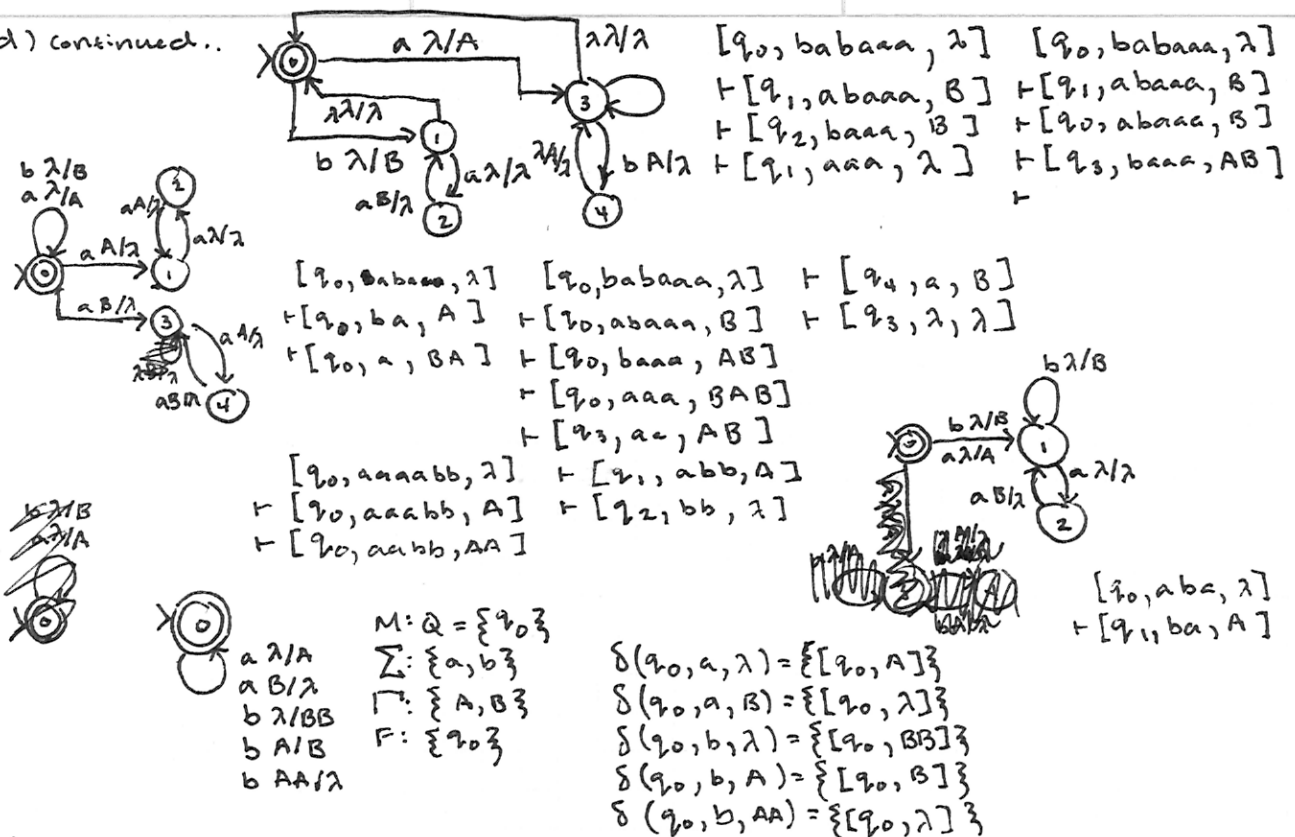 d) continued..
a λ/A
λλ/λ
λλ/λ
b λ/B
a λ/λ
a B/λ
λA/λ
b A/λ
0
1
2
3
4
[q₀, babaaa, λ]
⊢[q₁, abaaa, B]
⊢[q₂, baaa, B]
⊢[q₁, aaa, λ]
[q₀, babaaa, λ]
⊢[q₁, abaaa, B]
⊢[q₀, abaaa, B]
⊢[q₃, baaa, AB]
⊢
b λ/B
a λ/A
aA/λ
aλ/λ
a A/λ
a B/λ
a A/λ
aB/λ
2
0
1
3
4
⊢[q₀, ba, A]
⊢[q₀, a, BA]
[q₀, babaaa, λ]
⊢[q₀, abaaa, B]
⊢[q₀, baaa, AB]
⊢[q₀, aaa, BAB]
⊢[q₃, aa, AB]
⊢[q₄, a, B]
⊢[q₃, λ, λ]
[q₀, aaaabb, λ]
⊢[q₀, aaabb, A]
⊢[q₀, aabb, AA]
⊢[q₁, abb, A]
⊢[q₂, bb, λ]
b λ/B
b λ/B
a λ/A
a λ/λ
a B/λ
0
1
2
[q₀, aba, λ]
⊢[q₁, ba, A]
b λ/B
a λ/A
0
0
a λ/A
a B/λ
b λ/BB
b A/B
b AA/λ
M: Q = {q₀}
Σ: {a, b}
Γ: {A, B}
F: {q₀}
δ(q₀, a, λ) = {[q₀, A]}
δ(q₀, a, B) = {[q₀, λ]}
δ(q₀, b, λ) = {[q₀, BB]}
δ(q₀, b, A) = {[q₀, B]}
δ(q₀, b, AA) = {[q₀, λ]}